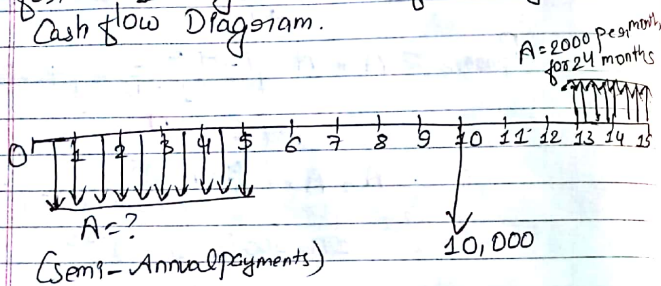 Cash flow Diagram.
A=2000 per month,
for 24 months
0 1 2 3 4 5 6 7 8 9 10 11 12 13 14 15
A=?
10,000
(Semi-Annual payments)